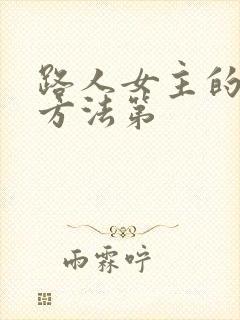 路人女主的
方法第
雨霖咛